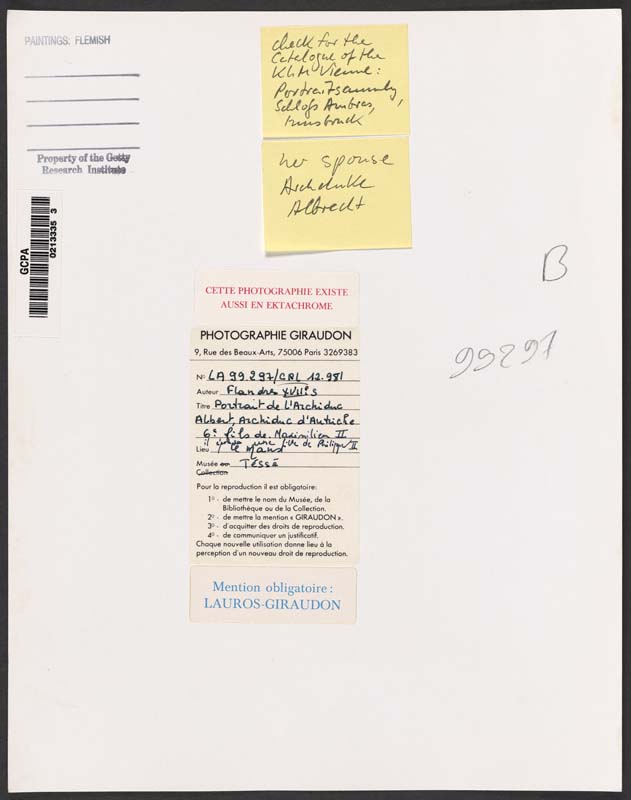 PAINTINGS: FLEMISH
Property of the Getty
Research Institute
GCPA
0213335 3
check for the
Catalogue of the
KhM Vienne:
Portraitsammlg,
Schloss Ambras,
Innsbruck
her spouse
Archduke
Albrecht
B
99297
CETTE PHOTOGRAPHIE EXISTE
AUSSI EN EKTACHROME
PHOTOGRAPHIE GIRAUDON
9, Rue des Beaux-Arts, 75006 Paris 3269383
No LA 99.297/CRL 12.981
Auteur Flandres XVIIs
Titre Portrait de L'Archiduc
Albert, Archiduc d'Autriche
6e fils de Maximilien II
il épousa une fille de Philippe II
Lieu le Mans
Musée ou Tessé
Collection
Pour la reproduction il est obligatoire:
1o - de mettre le nom du Musée, de la
Bibliothèque ou de la Collection.
2o - de mettre la mention « GIRAUDON ».
3o - d'acquitter des droits de reproduction.
4o - de communiquer un justificatif.
Chaque nouvelle utilisation donne lieu à la
perception d'un nouveau droit de reproduction.
Mention obligatoire:
LAUROS-GIRAUDON